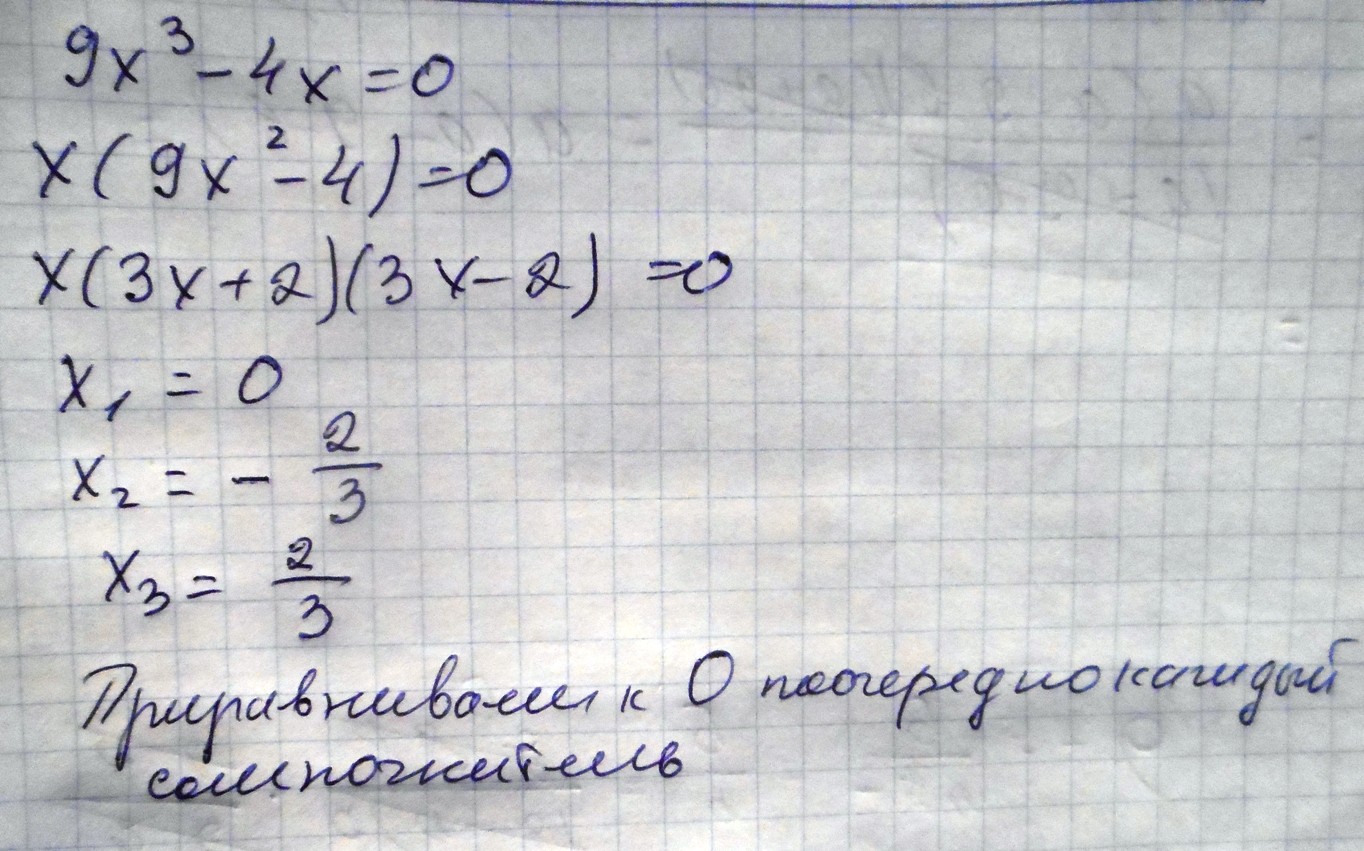 9x³ - 4x = 0
x(9x² - 4) = 0
x(3x + 2)(3x - 2) = 0
x₁ = 0
x₂ = - 2/3
x₃ = 2/3
Приравниваем к 0 поочередно каждый
сомножитель